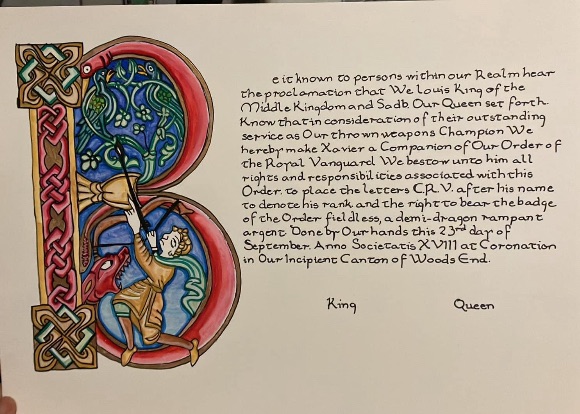 Be it known to persons within our Realm hear
the proclamation that We Louis King of the
Middle Kingdom and Sadb, Our Queen set forth.
Know that in consideration of their outstanding
service as Our thrown weapons Champion We
hereby make Xavier a Companion of Our Order of
the Royal Vanguard. We bestow unto him all
rights and responsibilities associated with this
Order. to place the letters C.R.V. after his name
to denote his rank, and the right to bear the badge
of the Order fieldless, a demi-dragon rampant
argent. Done by Our hands this 23rd day of
September, Anno Societatis XVIII at Coronation
in Our Incipient Canton of Woods End.
King Queen